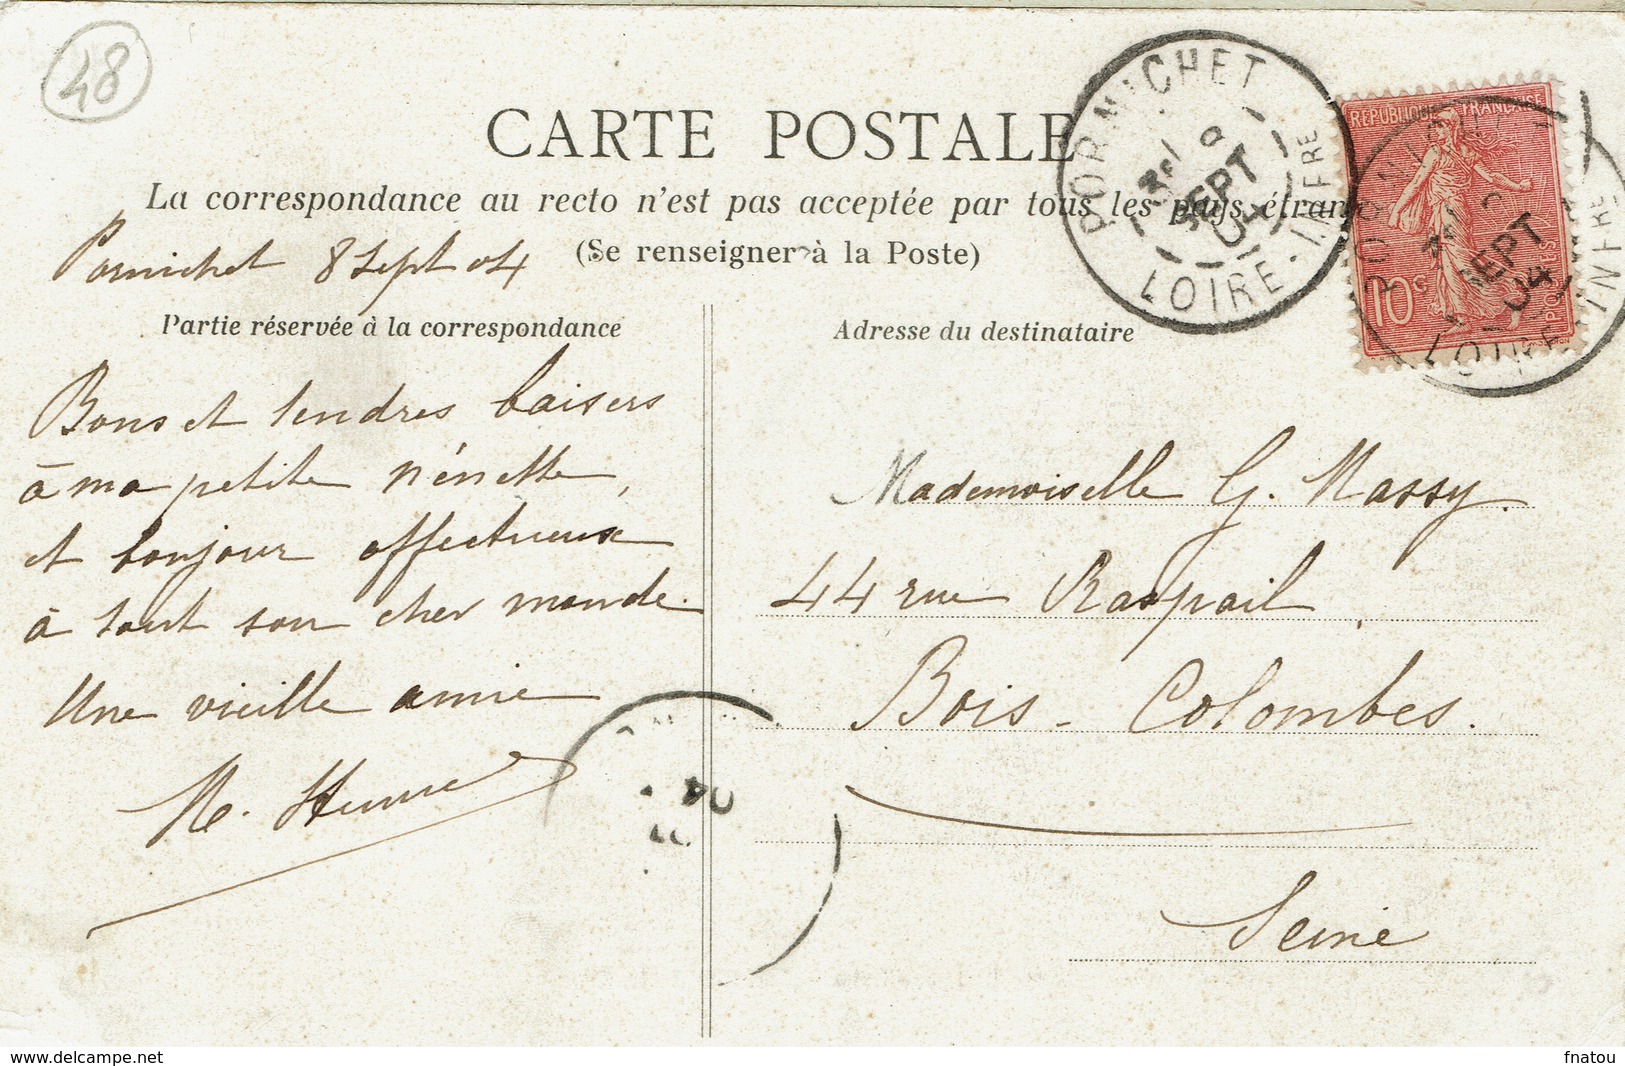 48
CARTE POSTALE
La correspondance au recto n'est pas acceptée par tous les pays étran
(Se renseigner à la Poste)
Pornichet 8 Sept 04
Partie réservée à la correspondance
Bons et tendres baisers
à ma petite nénette,
et bonjour affectueux
à tout son cher monde.
Une vieille amie
Adresse du destinataire
Mademoiselle G. Massy.
44 rue Raspail,
Bois-Colombes.
Seine
PORNICHET
SEPT
04
LOIRE-INFRE
REPUBLIQUE FRANÇAISE
POSTES
10c
SEPT
04
LOIRE-INFRE
04
www.delcampe.net
fnatou